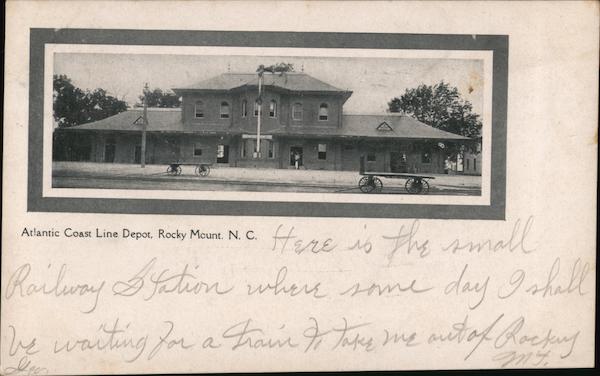 Atlantic Coast Line Depot, Rocky Mount. N. C.
Here is the small
Railway Station where some day I shall
be waiting for a train to take me out of Rocky
Mt.